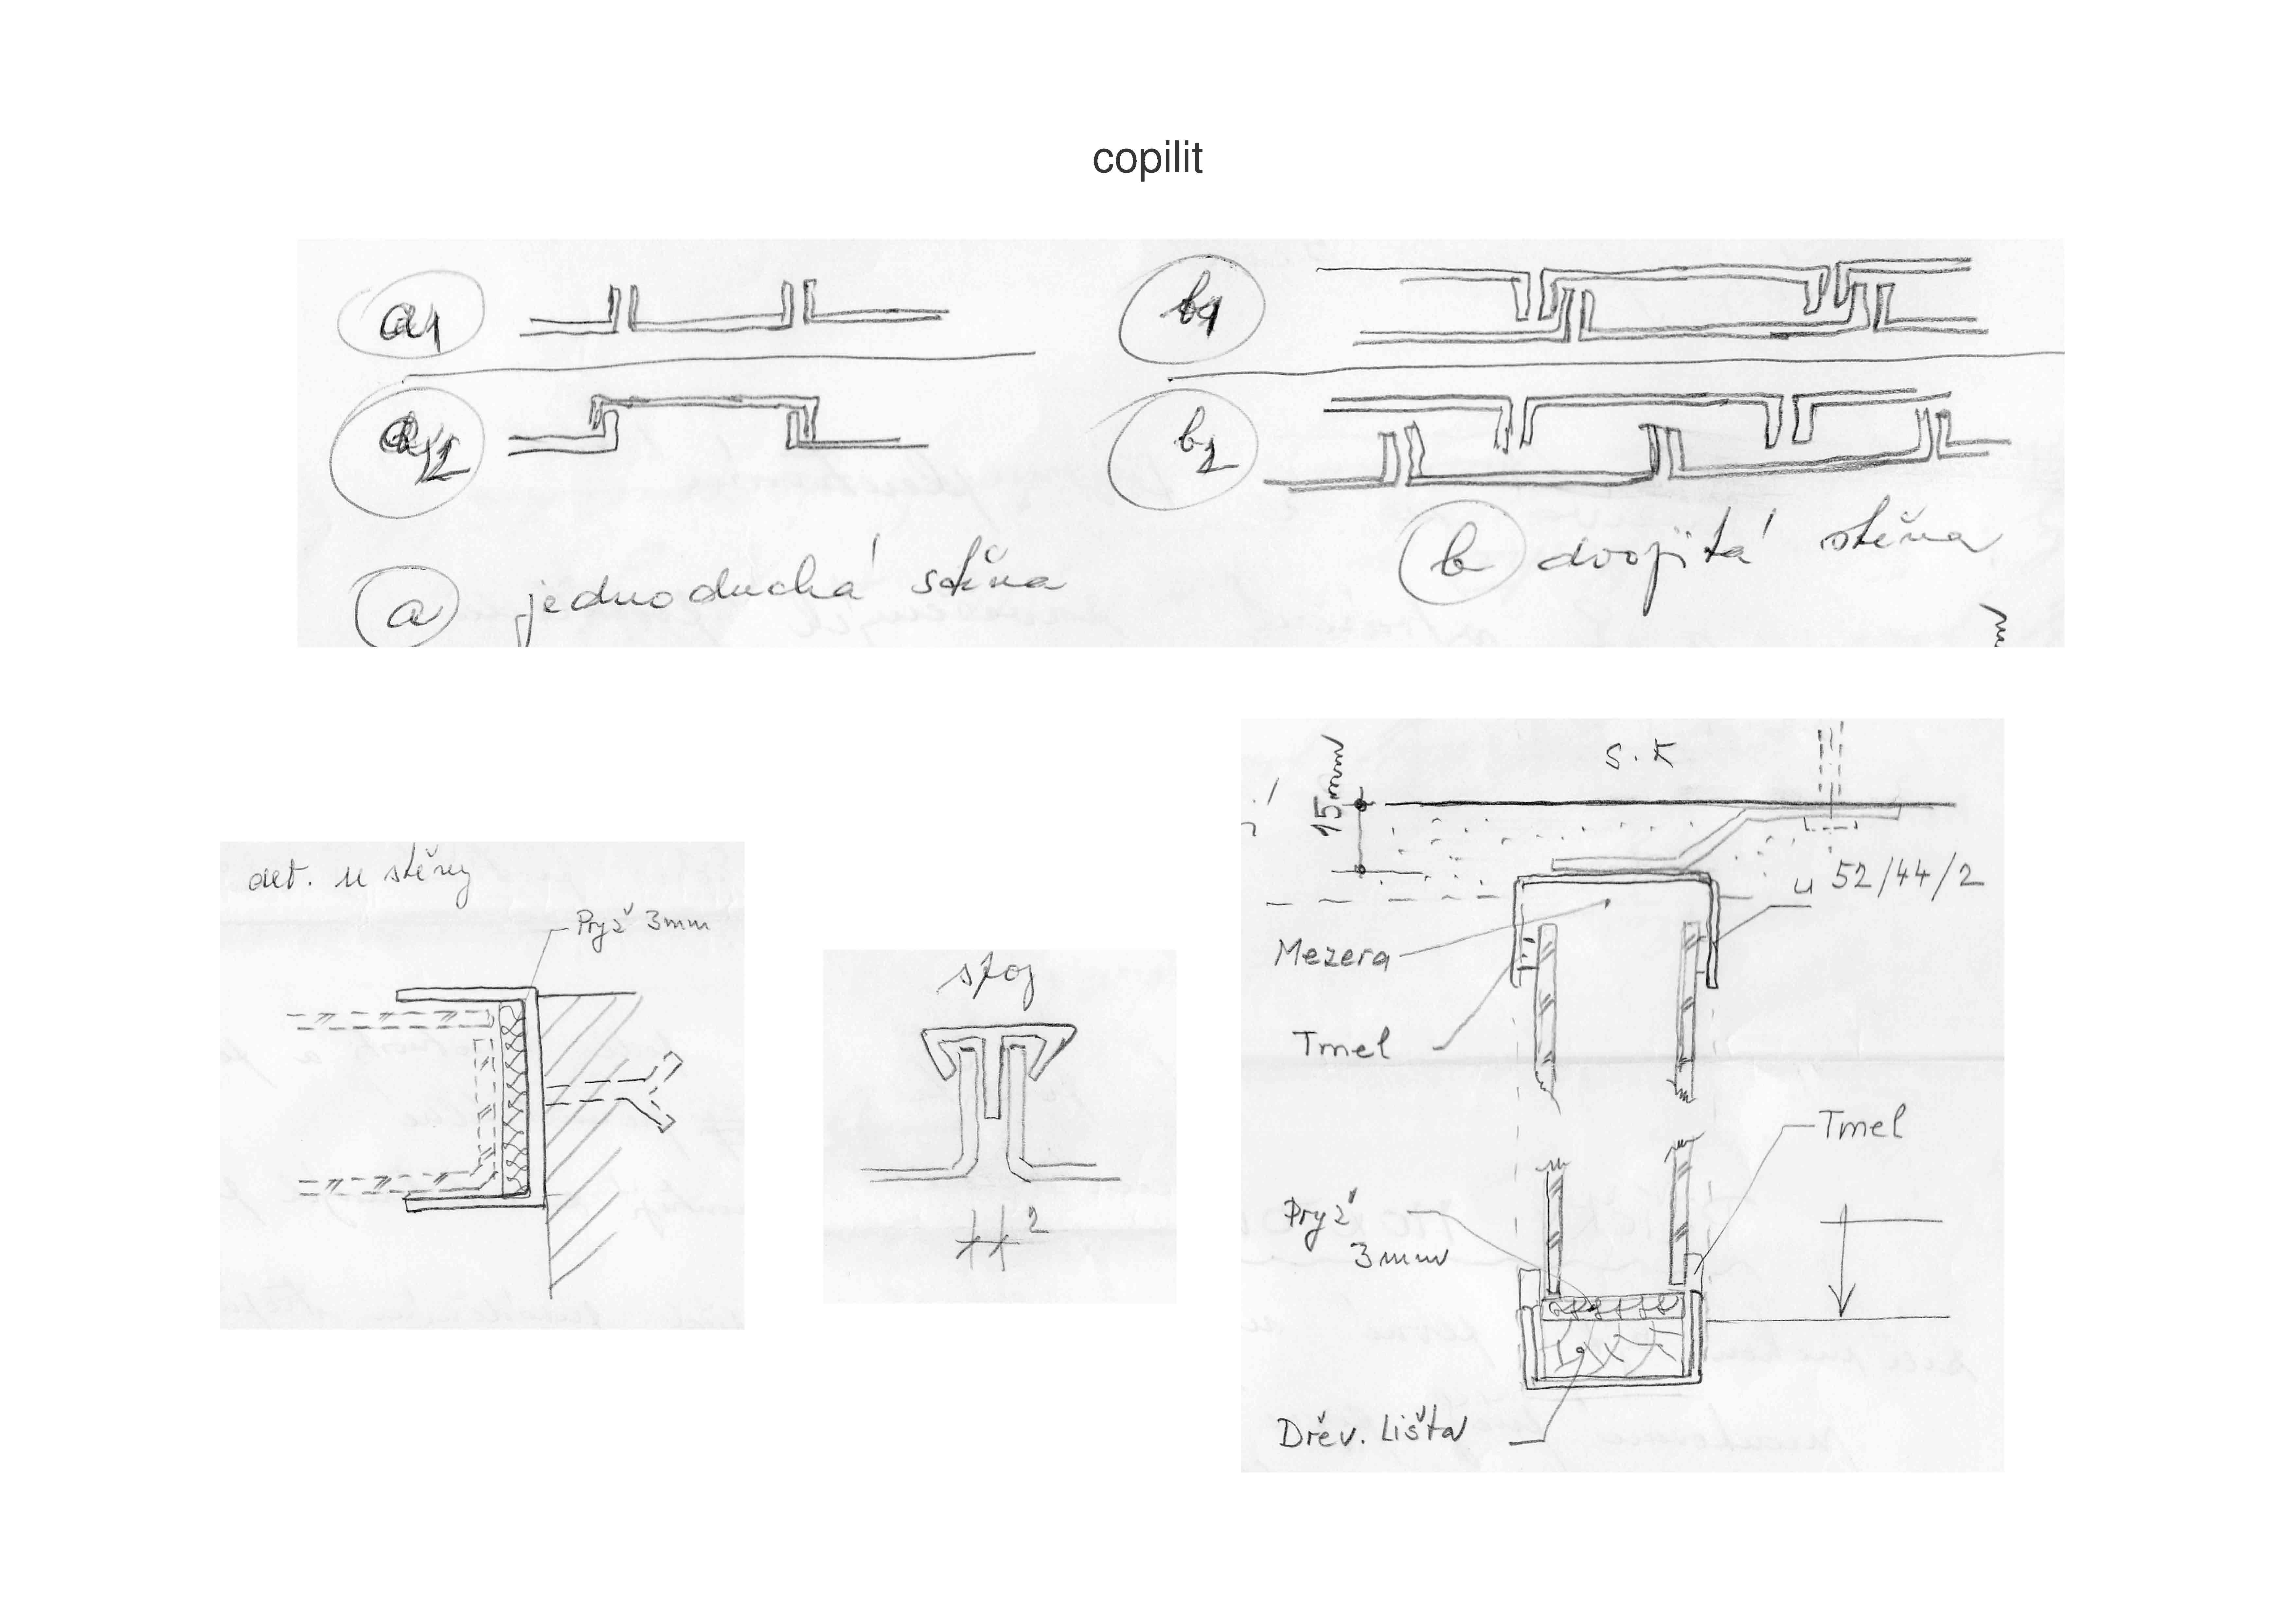 copilit
a1
b1
a2
b2
a jednoduchá stěna
b dvojitá stěna
det. u stěny
Pryž 3mm
spoj
2
S.K
15mm
u 52/44/2
Mezera
Tmel
Tmel
Pryž
3mm
Dřev. Lišta